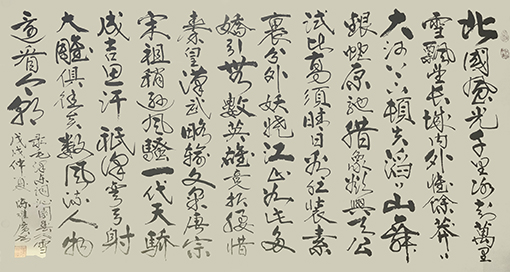 北國風光千里冰封萬里
雪飄望長城內外惟餘莽〻
大河上下頓失滔〻山舞
銀蛇原馳蜡象欲與天公
試比高須晴日看紅裝素
裹分外妖嬈江山如此多
嬌引無數英雄競折腰惜
秦皇漢武略輸文采唐宗
宋祖稍遜風騷一代天驕
成吉思汗祇識彎弓射
大雕俱往矣數風流人物
還看今朝
錄毛澤東詞沁園春雪
戊戌仲夏